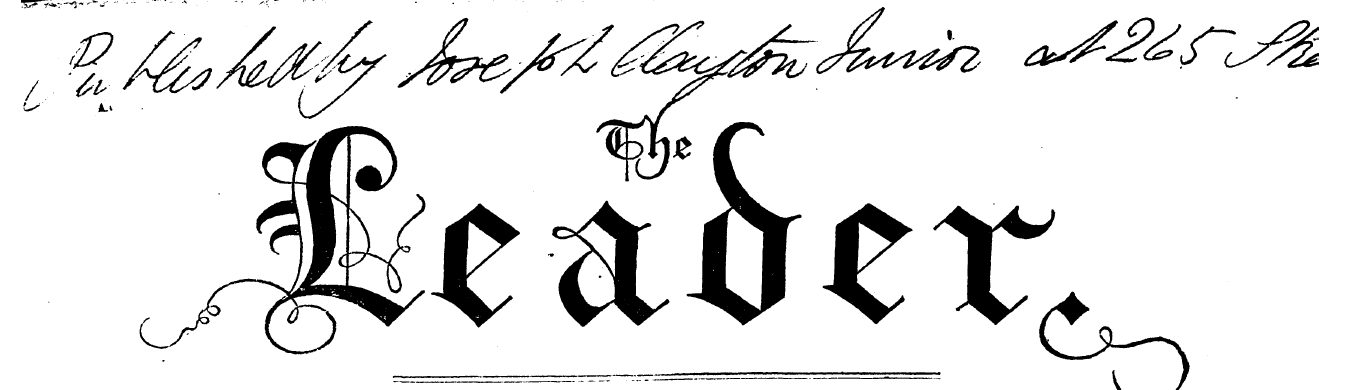 Published by Joseph Clayton Junior at 265
The
Leader.